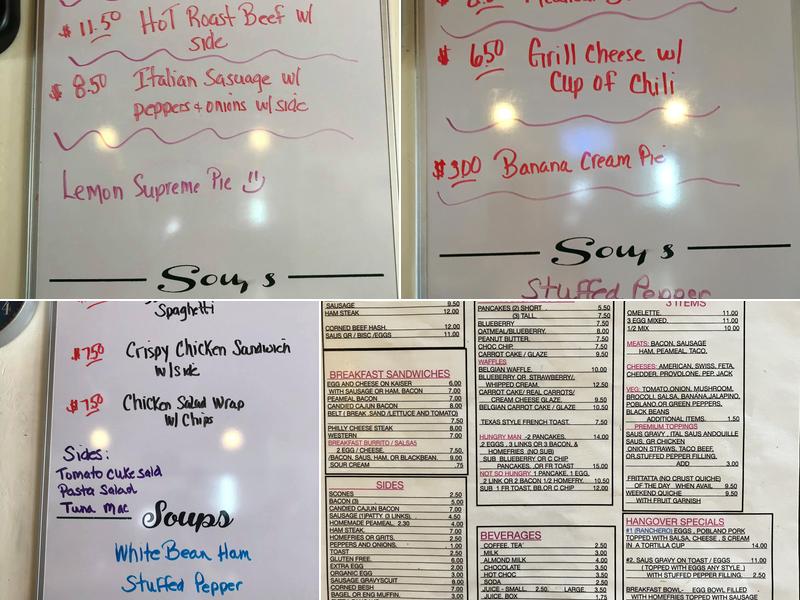 $11.50 Hot Roast Beef w/
side
$8.50 Italian Sasuage w/
peppers & onions w/side
Lemon Supreme Pie
Soups
$6.50 Grill Cheese w/
Cup of Chili
$3.00 Banana Cream Pie
Soups
Stuffed Pepper
Spaghetti
$7.50 Crispy Chicken Sandwich
w/side
$7.50 Chicken Salad Wrap
w/ Chips
Sides:
Tomato cuke salad
Pasta Salad
Tuna Mac
Soups
White Bean Ham
Stuffed Pepper
SAUSAGE 9.50
HAM STEAK 12.00
CORNED BEEF HASH. 12.00
SAUS GR / BISC /EGGS 11.00
BREAKFAST SANDWICHES
EGG AND CHEESE ON KAISER 6.00
WITH SAUSAGE OR HAM, BACON 7.00
PEAMEAL BACON 7.00
CANDIED CAJUN BACON 8.00
BELT ( BREAK .SAND /LETTUCE AND TOMATO)
7.50
PHILLY CHEESE STEAK 8.00
WESTERN 7.00
BREAKFAST BURRITO / SALSAS
2 EGG / CHEESE. 7.50
/BACON, SAUS, HAM, OR BLACKBEAN. 9.00
SOUR CREAM .75
SIDES
SCONES 2.50
BACON (3) 5.00
CANDIED CAJUN BACON 7.00
SAUSAGE (1)PATTY, (3 LINKS), 4.50
HOMEMADE PEAMEAL, 2.30 4.00
HAM STEAK. 7.00
HOMEFRIES OR GRITS. 2.50
PEPPERS AND ONIONS. 1.00
TOAST 2.50
GLUTEN FREE. 6.00
EXTRA EGG 2.00
ORGANIC EGG 3.00
SAUSAGE GRAVY/SCUIT 8.00
CORNED BESH 7.00
BAGEL, OR ENG MUFFIN. 3.00
PANCAKES (2) SHORT 5.50
(3) TALL. 7.50
BLUEBERRY 7.50
OATMEAL/BLUEBERRY. 8.00
PEANUT BUTTER. 7.50
CHOC CHIP. 7.50
CARROT CAKE / GLAZE 9.50
WAFFLES
BELGIAN WAFFLE. 10.00
BLUEBERRY OR STRAWBERRY/,
WHIPPED CREAM. 12.50
CARROT CAKE/ REAL CARROTS/
CREAM CHEESE GLAZE. 9.50
BELGIAN CARROT CAKE / GLAZE 10.50
TEXAS STYLE FRENCH TOAST. 7.50
HUNGRY MAN -2 PANCAKES. 14.00
2 EGGS , 3 LINKS OR 3 BACON, &
HOMEFRIES (NO SUB)
SUB BLUEBERRY OR C CHIP
PANCAKES. .OR FR TOAST 15.00
NOT SO HUNGRY. 1 PANCAKE. 1 EGG,
2 LINK OR 2 BACON 1/2 HOMEFRY. 10.50
SUB 1 FR TOAST, BB,OR C CHIP 12.00
BEVERAGES
COFFEE, TEA 2.50
MILK 3.00
ALMOND MILK 4.00
CHOCOLATE 3.50
HOT CHOC 3.50
SODA 2.50
JUICE - SMALL. 2.50. LARGE. 3.50
JUICE, BOX 1.75
3 ITEMS
OMELETTE. 11.00
3 EGG MIXED. 11.00
1/2 MIX 10.00
MEATS: BACON, SAUSAGE
HAM, PEAMEAL, TACO.
CHEESES: AMERICAN, SWISS, FETA,
CHEDDER, PROVOLONE, PEP, JACK
VEG: TOMATO,ONION, MUSHROOM,
BROCOLLI, SALSA, BANANA,JALAPINO,
POBLANO,OR GREEN PEPPERS,
BLACK BEANS
ADDITIONAL ITEMS. 1.50
PREMIUM TOPPINGS
SAUS GRAVY , ITAL SAUS ANDOUILLE
SAUS, GR CHICKEN
ONION STRAWS, TACO BEEF,
OR,STUFFED PEPPER FILLING.
ADD 3.00
FRITTATTA (NO CRUST QUICHE)
OF THE DAY WHEN AVAIL 9.50
WEEKEND QUICHE 9.50
WITH FRUIT GARNISH
HANGOVER SPECIALS
#1 (RANCHERO) EGGS , POBLANO PORK
TOPPED WITH SALSA, CHEESE , S CREAM
IN A TORTILLA CUP 14.00
#2. SAUS GRAVY ON TOAST / EGGS 11.00
(TOPPED WITH EGGS ANY STYLE )
WITH STUFFED PEPPER FILLING. 2.50
BREAKFAST BOWL- EGG BOWL FILLED
WITH HOMEFRIES TOPPED WITH SAUSAGE